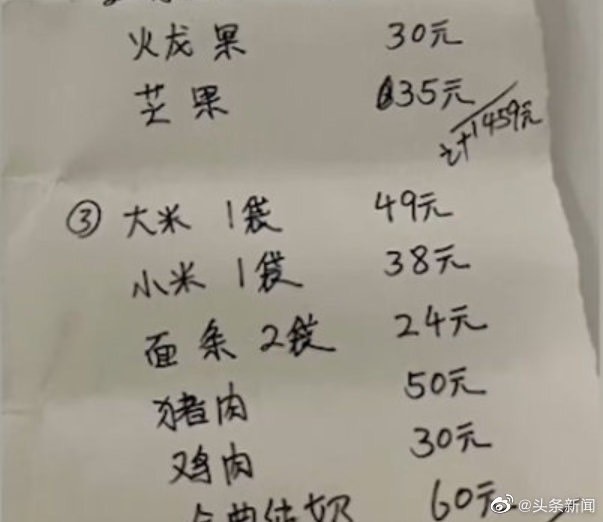 火龙果 30元
芒果 35元
计1459元
③ 大米 1袋 49元
小米 1袋 38元
面条 2袋 24元
猪肉 50元
鸡肉 30元
纯奶 60元
@头条新闻